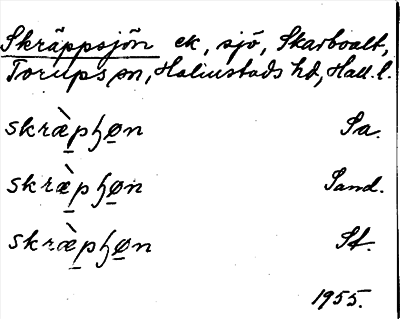 Skräppsjön ek, sjö, Skarboalt,
Torups sn, Halmstads hd, Hall. l.
skræ̀pɧøn Sa.
skræ̀pɧøn Sand.
skræ̀pɧøn St.
1955.